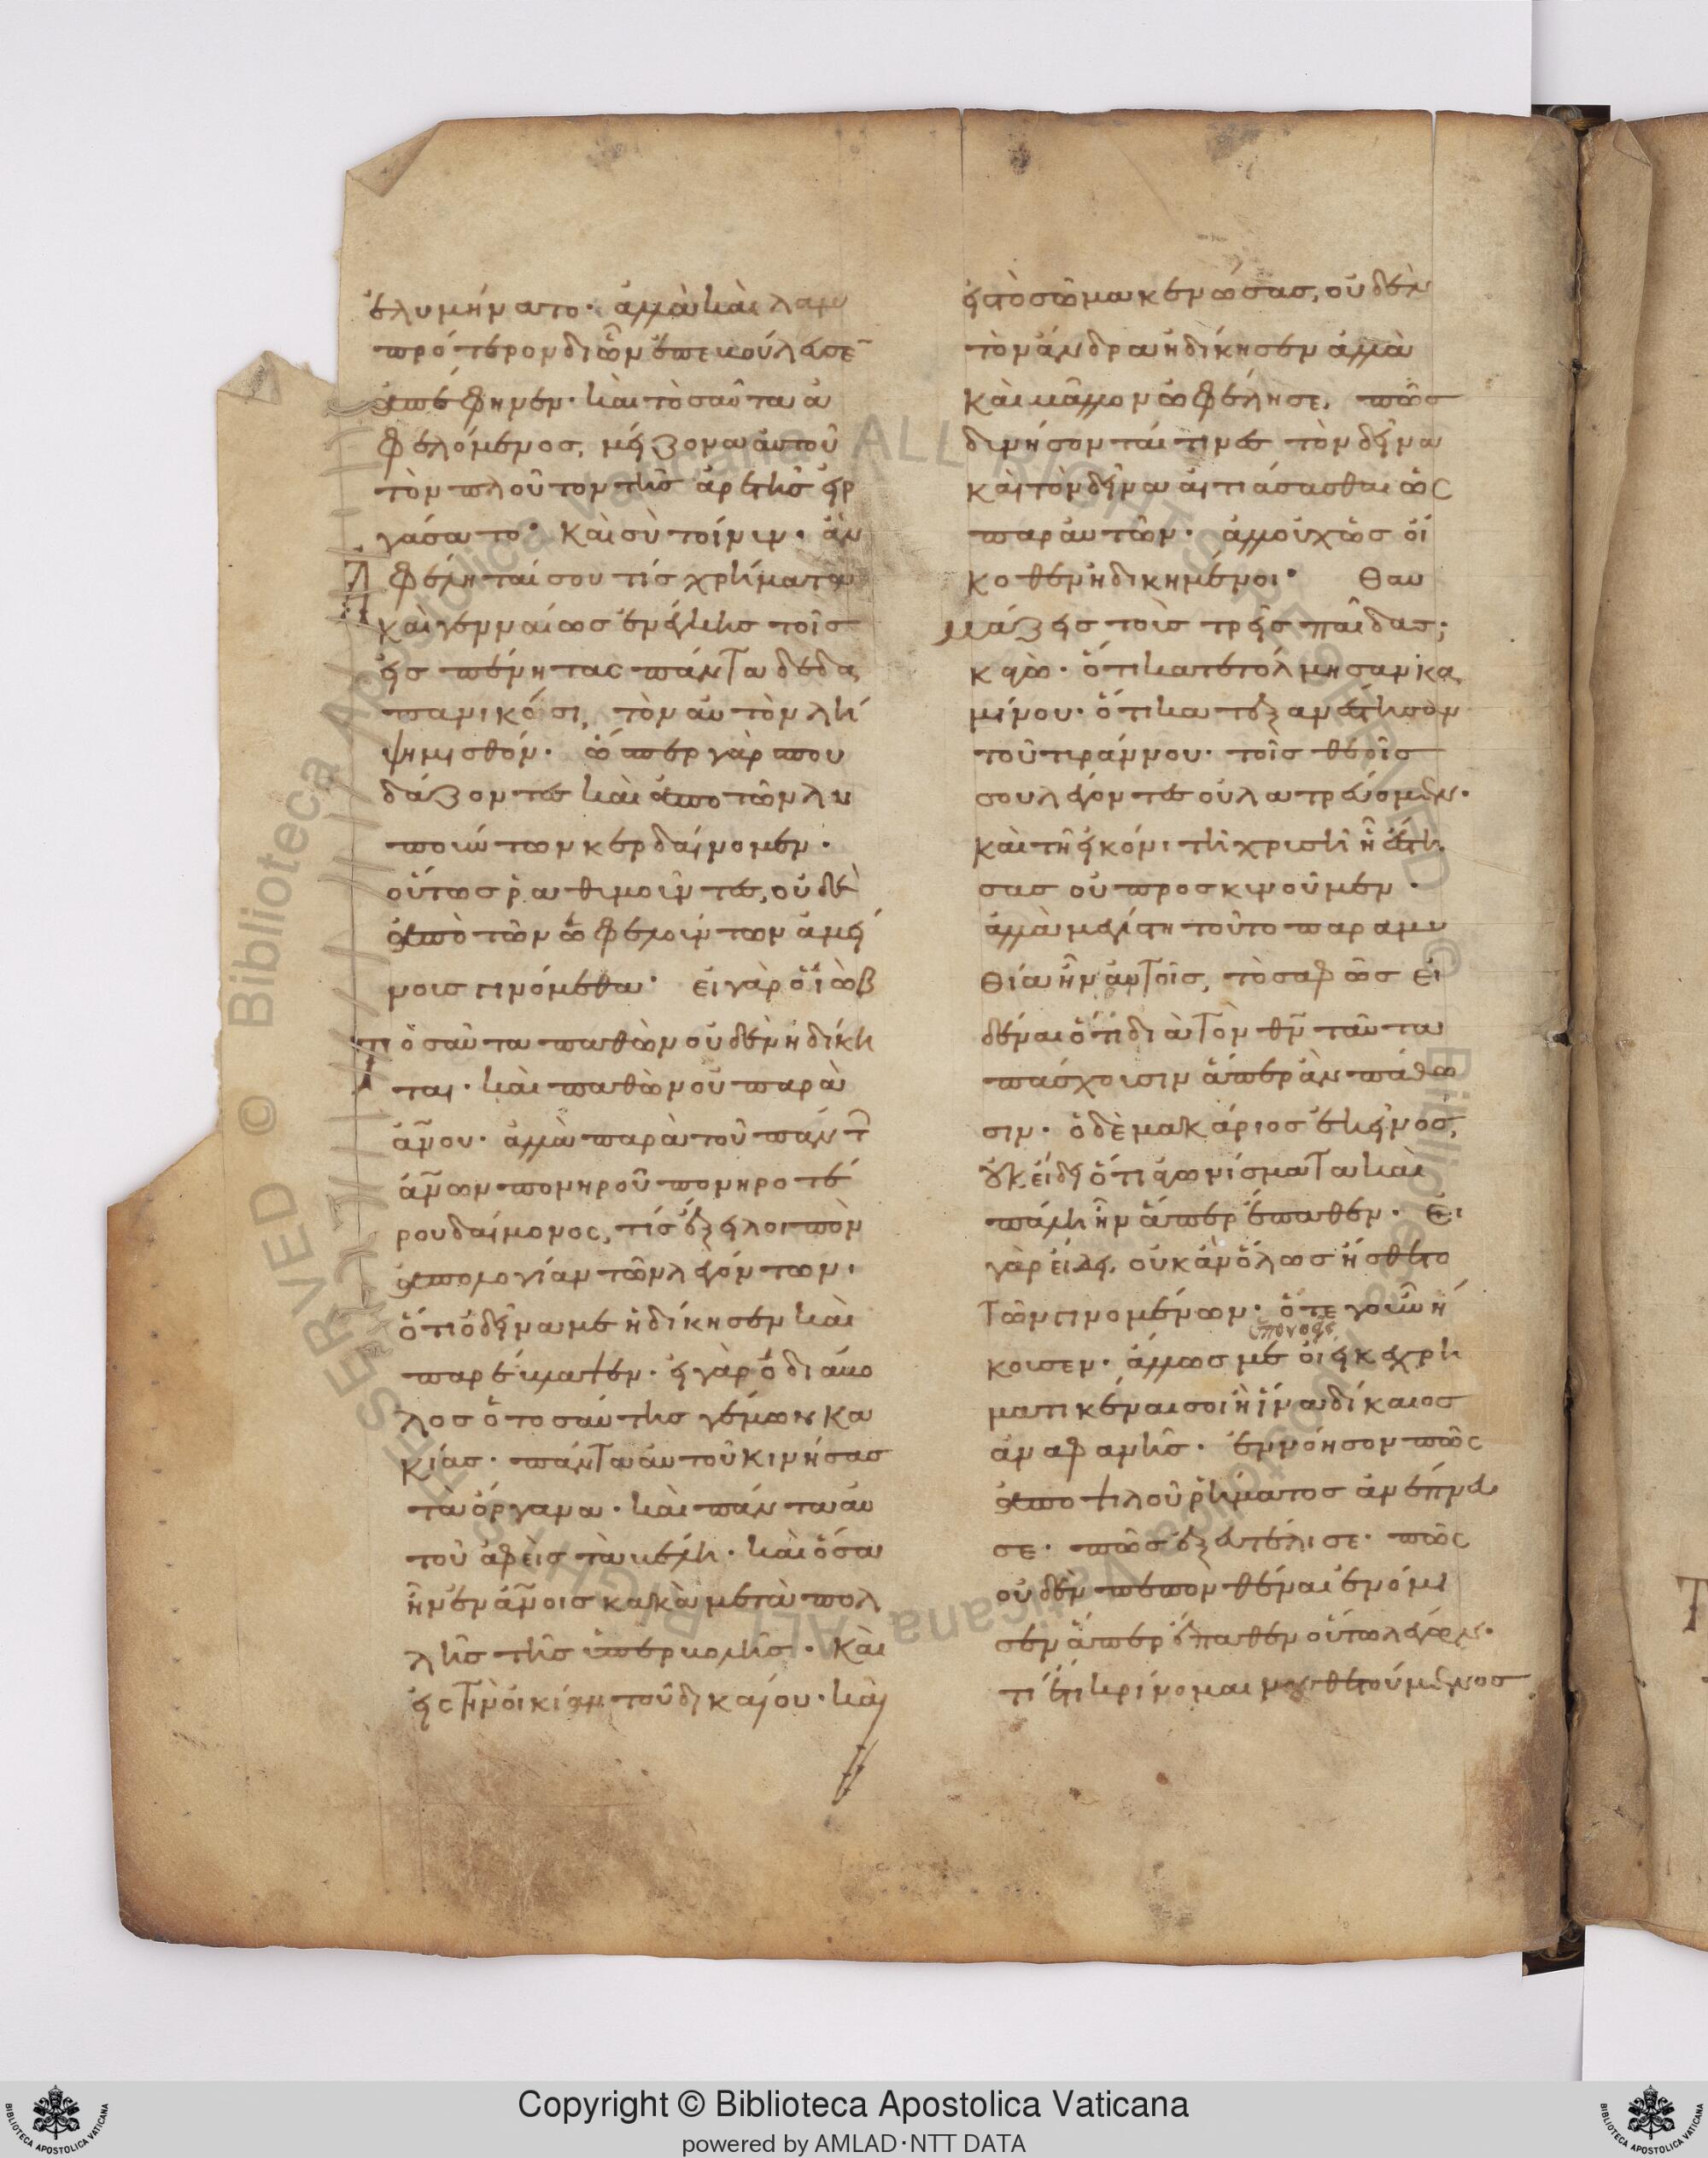 ἐλυμήνατο· ἀλλὰ καὶ λαμ
πρότερον δι ὧν ἐπεκούλησε
ἀπέφηνεν· καὶ τοσαῦτα ἀ
φελόμενος, μείζονα αὐτοῦ
τὸν πλοῦτον τῆς ἀρετῆς εἰρ
γάσατο· καὶ σὺ τοίνυν· ἂν
ἀφέληταί σού τίς χρήματα
καὶ γενναίως ἐνέγκῃς τοῖς
εἰς πένητας πάντα δεδα
πανικόσι, τὸν αὐτὸν λή
ψῃ μισθόν· ὥσπερ γὰρ σπου
δάζοντες καὶ ἀπὸ τῶν λυ
ποιώτων κερδαίνομεν·
οὕτως ῥαθυμοῦντες, οὐδὲ
ἀπὸ τῶν ὠφελούντων ἀμεί
νοις γινόμεθα· εἰ γὰρ ὁ ἰὼβ
τοσαῦτα παθὼν οὐδὲν ἠδίκη
ται· καὶ παθὼν οὐ παρὰ
ἀνου· ἀλλὰ παρὰ τοῦ πάντ
ἀνων πονηροῦ πονηροτέ
ρου δαίμονος, τίς ἕξει λοιπὸν
ἀπολογίαν τῶν λεγόντων·
ὅτι ὁ δεῖνα με ἠδίκησεν καὶ
παρέβλαψεν· εἰ γὰρ ὁ διάβο
λος ὁ τοσαύτης γέμων κα
κίας· πάντα αὐτοῦ κινήσας
τὰ ὄργανα· καὶ πάντα αὐ
τοῦ ἀφεὶς τὰ βέλη· καὶ ὅσα
ἦν ἐν ἀνοις κακὰ μετὰ πολ
λῆς τῆς ὑπερβολῆς· καὶ
εἰς τὴν οἰκίαν τοῦ δικαίου· καὶ
εἰς τὸ σῶμα κενώσας, οὐδὲν
τὸν ἄνδρα ἠδίκησεν ἀλλὰ
καὶ μᾶλλον ὠφέλησε, πῶς
δυνήσονταί τινες τὸν δεῖνα
καὶ τὸν δεῖνα αἰτιάσασθαι ὡς
παρ αὐτῶν· ἀλλ οὐχ ὡς οἴ
κοθεν ἠδικημένοι· Θαυ
μάζεις τοὺς τρεῖς παῖδας;
κἀγὼ· ὅτι κατετόλμησαν κα
μίνου· ὅτι κατεξανέστησαν
τοῦ τυράννου· τοῖς θεοῖς
σου λέγοντες οὐ λατρεύομεν·
καὶ τῇ εἰκόνι τῇ χρυσῇ ᾗ ἔστη
σας οὐ προσκυνοῦμεν·
ἀλλὰ μεγίστη τοῦτο παραμυ
θία ἦν αὐτοῖς, τὸ σαφῶς εἰ
δέναι ὅτι διὰ τὸν θν ταῦτα
πάσχουσιν ἅπερ ἂν πάθω
σιν· ὁ δὲ μακάριος ἐκεῖνος,
οὐκ εἴδει ὅτι ἀγωνίσματα καὶ
πάλη ἦν ἅπερ ἔπαθεν· Εἰ
γὰρ εἴδει, οὐκ ἂν ὅλως ᾔσθετο
τῶν γινομένων· ὅτε γοῦν ἤ
κουσεν· ἄλλως με οἴει κεχρη
ματικέναι σοι ἢ ἵνα δίκαιος
ἀναφανῇς· ἐννόησον πῶς
ἀπὸ ψιλοῦ ῥήματος ἀνέπνευ
σε· πῶς ἐξευτέλισε· πῶς
οὐδὲν πεπονθέναι ἐνόμι
σεν ἅπερ ἔπαθεν οὕτω λέγων·
τί ἔτι κρίνομαι νουθετούμενος